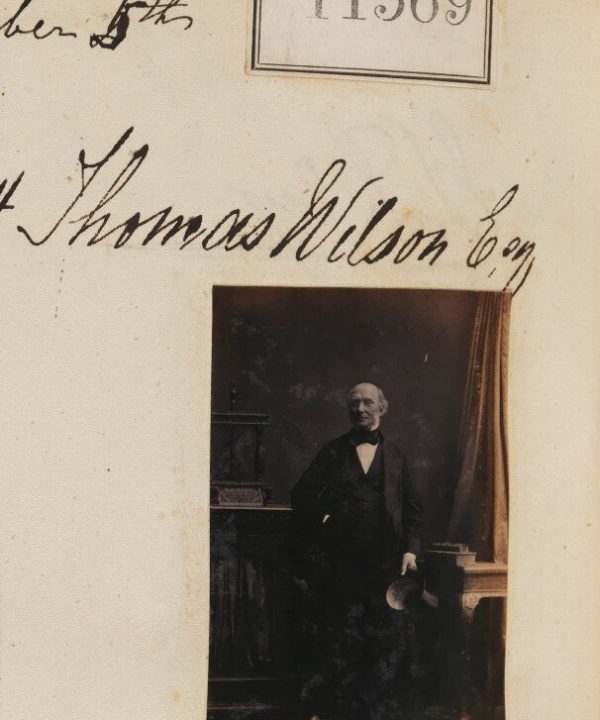 ber 5th
11569
Thomas Wilson Esq